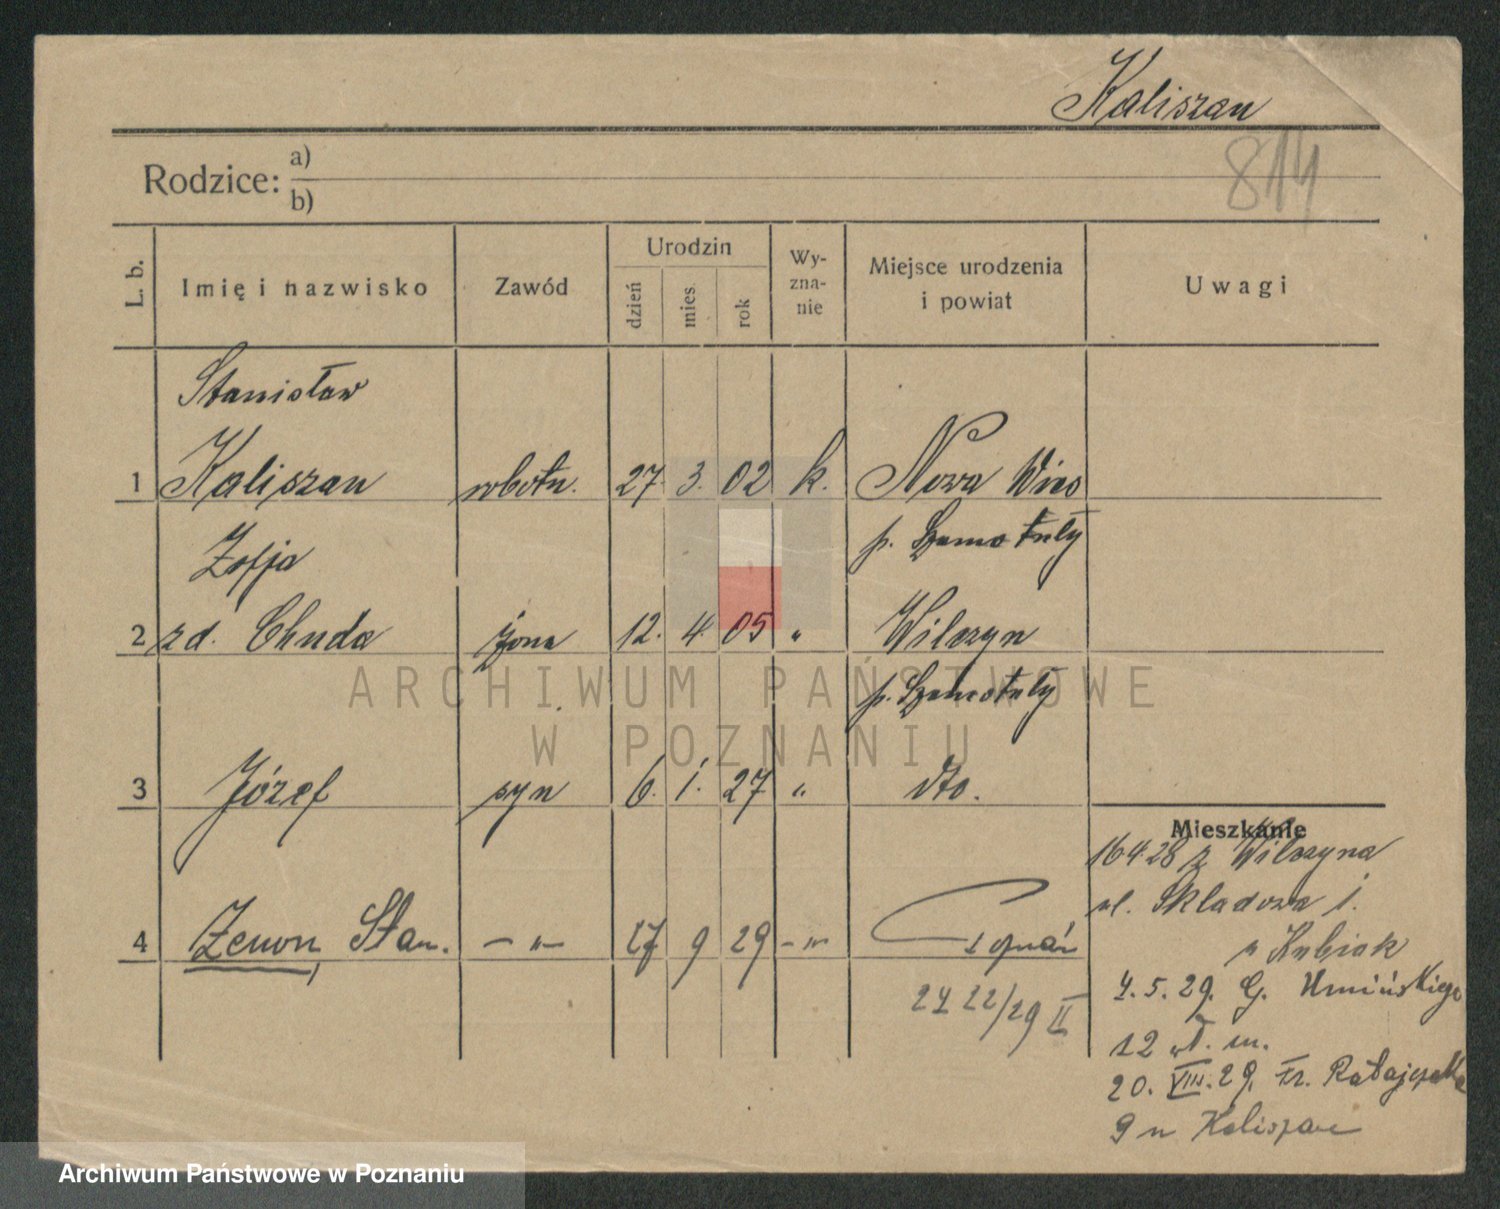 Kaliszan
814
Rodzice: a)
b)
L. b. Imię i nazwisko Zawód Urodzin dzień mies. rok Wy-zna-nie Miejsce urodzenia i powiat Uwagi
Stanisław
1 Kaliszan robotn. 27. 3. 02 k. Nowa Wieś
Zofja p. Szamotuły
2 zd. Chuda żona 12. 4. 05 " Wilczyn
p. Szamotuły
ARCHIWUM PAŃSTWOWE
W POZNANIU
3 Józef syn 6. 1. 27 " dto.
Mieszkanie
16428 z Wilczyna
ul. Składowa 1.
4 Zenon, Stan. - " - 27 9 29 - " - Poznań
u Kubiak
22/29 II
7. 5. 29. G. Umińskiego
12 wł. m.
20. VIII. 29. Fr. Ratajczaka
9 u Kaliszan
Archiwum Państwowe w Poznaniu